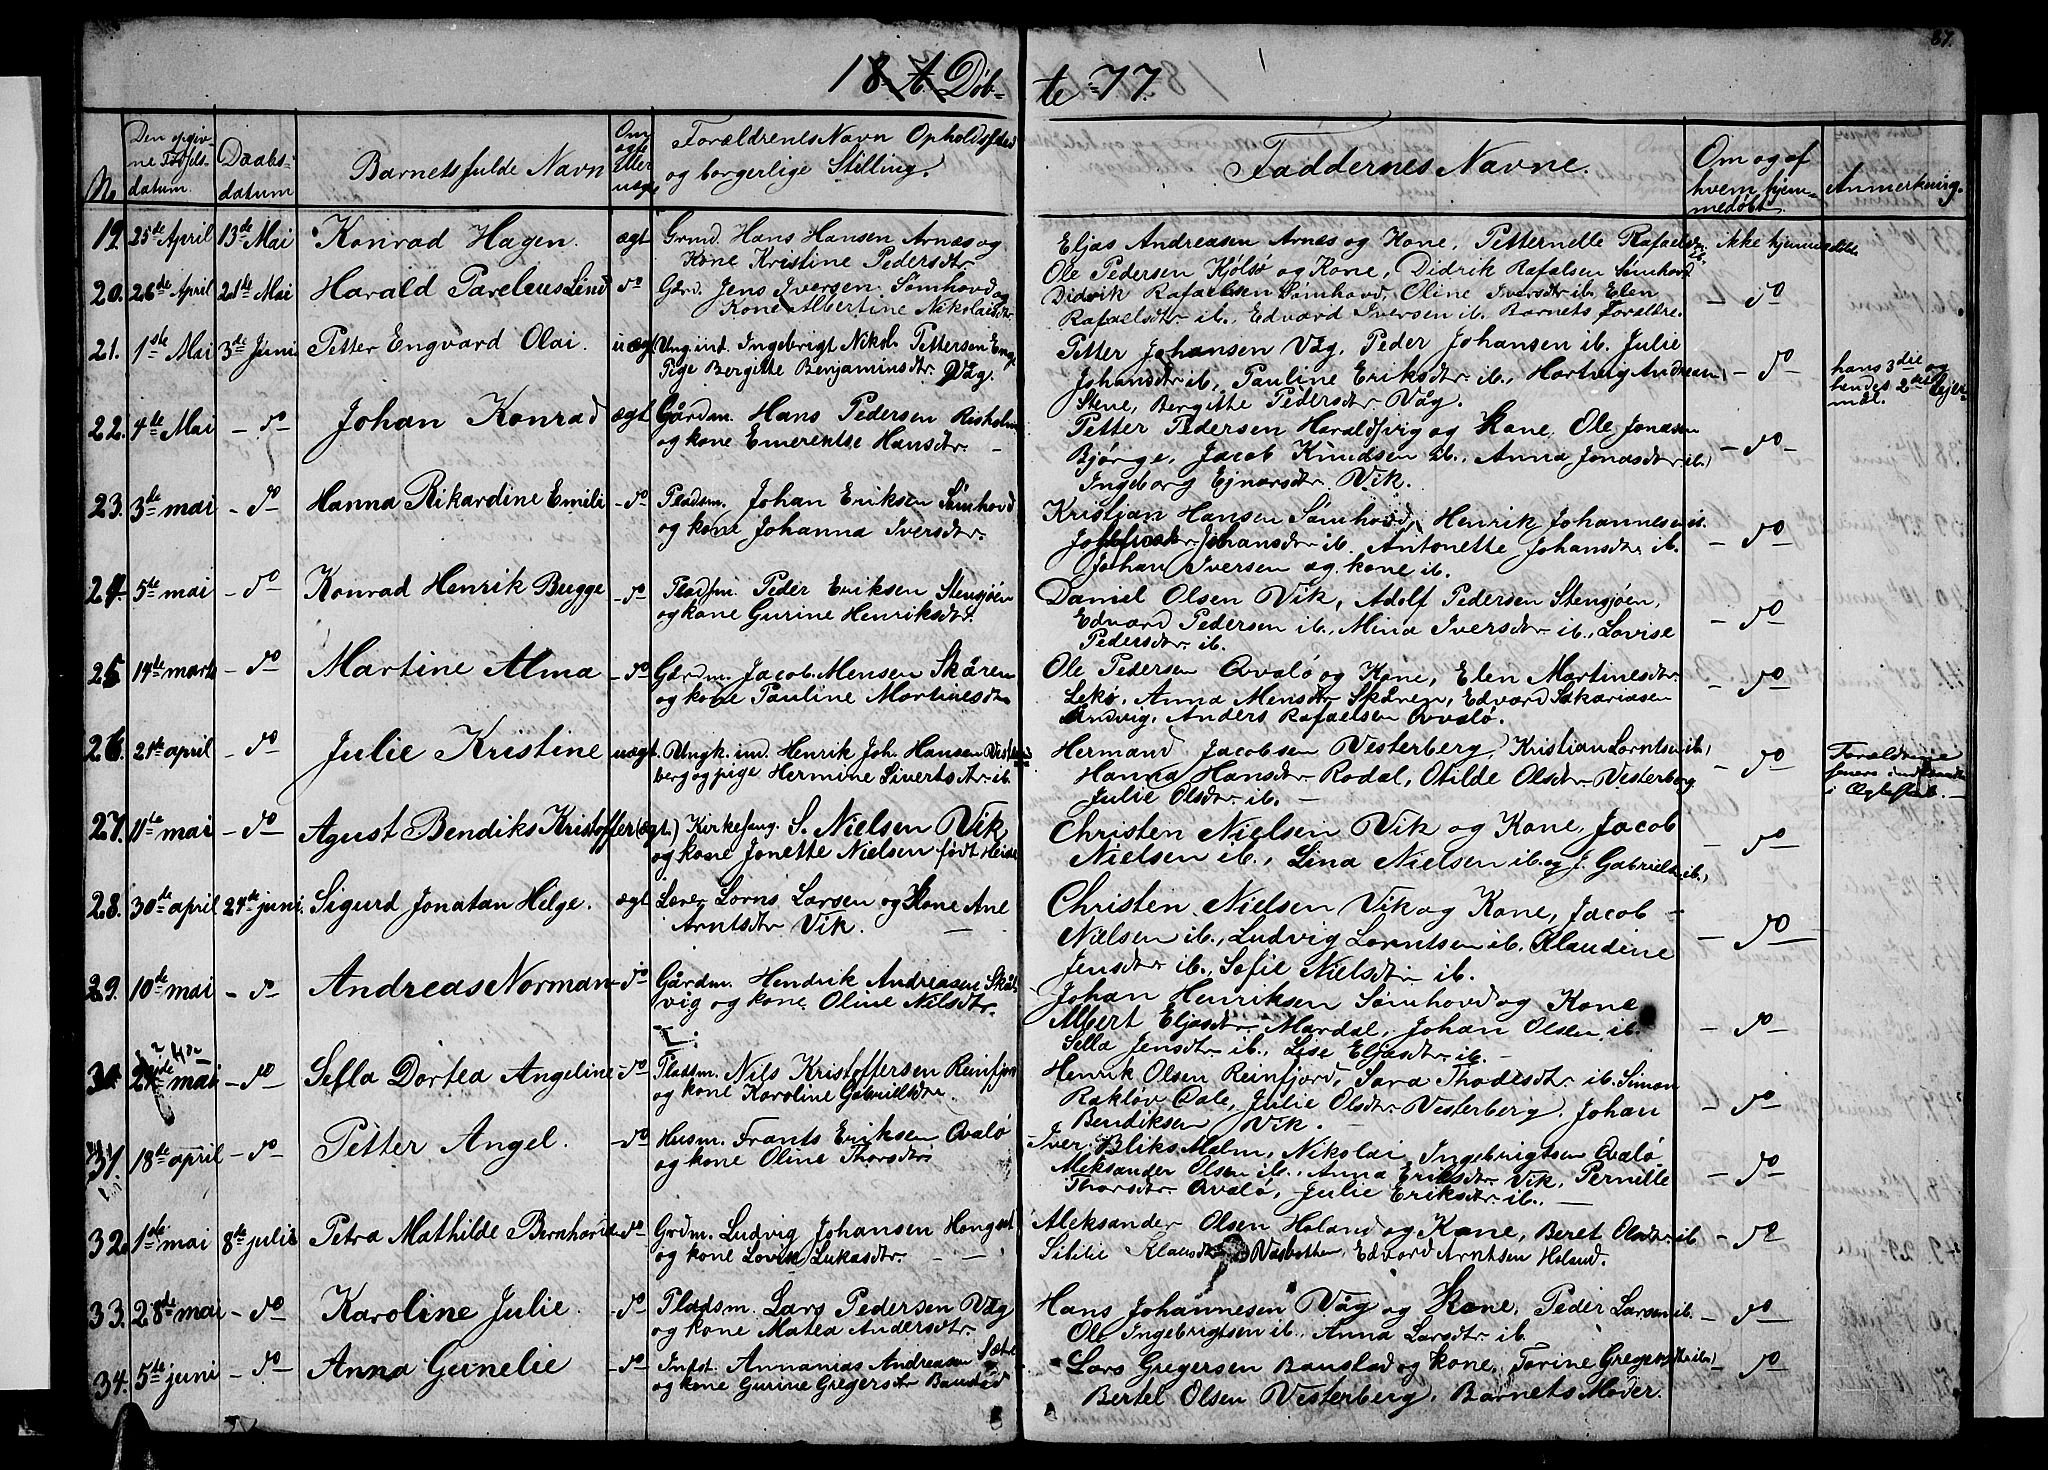 87.
18 A. Døb-te 77.
No
Den opgivne Fødselsdatum.
Daabsdatum
Barnets fulde Navn
Om ægte eller uægte
Forældrenes Navn Opholdssted og borgerlige Stilling.
Faddernes Navne.
Om og af hvem hjemmedøbt
Anmerkning.
19. 25de April 13de Mai Konrad Hagen. ægt Grmd. Hans Hansen Arnæs og
Kone Kristine Pedersdtr.
Eljas Andreasen Arnes og Kone, Petternelle Rafaelsdtr ib. ikke hjemmedøbt
Ole Pedersen Kjølsø og Kone, Didrik Rafalsen Sømhovd
20. 26de April 21de Mai Harald Parelius Lind do Gård. Jens Iversen Sømhovd og
Kone Albertine Nikolaisdtr
Didrik Rafaelsen Sømhovd, Oline Iversdtr ib. Elen
Rafaelsdtr ib., Edvard Iversen ib. Barnets Forældre.
- do
21. 1ste Mai 3de Juni Petter Engvard Olai. uægt Ung. ind. Ingebrigt Nikol. Pettersen
Pige Bergitte Benjaminsdtr. Våg.
Petter Johansen Våg, Peder Johansen ib. Julie
Johansdtr ib., Pauline Eriksdtr ib., Hartvig Andreas.
Stene, Bergitte Pedersdtr Våg.
- do -
hans 3die og
hendes 2det Lejer-
mål.
22. 4de Mai - do - Johan Konrad ægt Gårdm. Hans Pedersen Risholm
og kone Emerentse Hansdtr. -
Petter Pedersen Haraldsvig og Kone, Ole Jonasen
Bjørge, Jacob Knudsen ib., Anna Jonasdtr ib.
Ingeborg Ejnarsdtr. Vik.
- do -
23. 3de mai - do - Hanna Rikardine Emilie - do - Pladsm. Johan Eriksen Sømhovd
og kone Johanna Iversdtr.
Kristjan Hansen Sømhovd, Henrik Johannesen ib.
Johansdtr ib. Antonette Johansdtr ib.
Johan Iversen og kone ib.
- do -
24. 5te mai - do - Konrad Henrik Bugge - do - Pladsm. Peder Eriksen Stensjøen
og kone Gurine Henriksdtr.
Daniel Olsen Vik, Adolf Pedersen Stensjøen,
Edvard Pedersen ib., Mina Iversdtr ib., Lovise
Pedersdtr ib.
- do -
25 14de marts - do - Martine Alma - do - Gårdm. Jacob Mensen Skåren
og kone Pauline Martinesdtr
Ole Pedersen Qvalø og Kone, Elen Martinesdtr
Lekø, Anna Mensdtr Skåren, Edvard Sakariasen
Andvig, Anders Rafaelsen Qvalø.
- do -
26. 21de april - do - Julie Kristine uægt Ungk. ind. Henrik Joh. Hansen Vester-
berg og pige Hermine Sivertsdtr ib.
Hermand Jacobsen Vesterberg, Kristian Lorntsen ib.,
Hanna Hansdtr Rodal, Otilde Olsdtr Vesterberg
Julie Olsdtr ib. -
- do -
Forældrene
senere indtraadte
i Ægteskab. -
27. 11te mai - do - Agust Bendiks Kristoffer (ægt.) Kirkesang. S. Nielsen Vik
og kone Jonette Nielsen født Heide
Christen Nielsen Vik og Kone, Jacob
Nielsen ib., Lina Nielsen ib. og J. Gabrielsen ib.,
- do
28. 30de april 24de juni. Sigurd Jonatan Helge. ægt Lærer Lorns Larsen og Kone Ane
Arntsdtr Vik. -
Christen Nielsen Vik og Kone, Jacob -
Nielsen ib., Ludvig Lorntsen ib. Klaudine
Jensdtr ib., Sofie Nielsdtr ib.
- do -
29. 10de mai - do - Andreas Norman - do Gårdm. Hendrik Andreasen Skåls-
vig og kone Oline Nilsdtr.
Johan Henriksen Sømhovd og Kone
Albert Eljasdtr Mardal, Johan Olsen ib.
Sella Jensdtr ib., Lise Eljasdtr ib. -
- do -
30. 21de mai - do - Sella Dortea Angeline - do - Pladsm. Nils Kristoffersen Reinfjord
og kone Karoline Gabrielsdtr.
Henrik Olsen Reinfjord, Sara Thodesdtr ib. Simon
Rakløv Dale, Julie Olsdtr Vesterberg, Johan
Bendiksen Vik. -
- do -
31. 18de april - do - Petter Angel. - do - Husm. Frants Eriksen Qvalø
og kone Oline Thorsdtr
Iver Bliks Malm, Nikolai Ingebrigtsen Qvalø
Aleksander Olsen ib., Anna Eriksdtr Vik, Pernille
Thorsdtr Qvalø, Julie Eriksdtr ib. -
- do -
32. 1ste mai 8de juli Petra Mathilde Bernhardine - do - Grdm. Ludvig Johansen Hongset
og kone Lovise Lukasdtr. - -
Aleksander Olsen Holand og Kone, Beret Olsdtr ib
Sibilie Klausdtr Edvard Arntsen Holand.
- do -
33. 28de mai - do - Karoline Julie. - do - Pladsm. Lars Pedersen Våg
og kone Matea Andersdtr.
Hans Johannesen Våg og Kone, Peder Larsen ib.
Ole Ingebrigtsen ib., Anna Larsdtr ib.
- do -
34. 5te juni - do - Anna Gunelie - do - Indst. Annanias Andreasen Sæter
og kone Gurine Gregersdtr Baustad
Lars Gregersen Baustad og kone, Torine Gregersdtr ib.
Bertel Olsen Vesterberg, Barnets Moder.
- do -